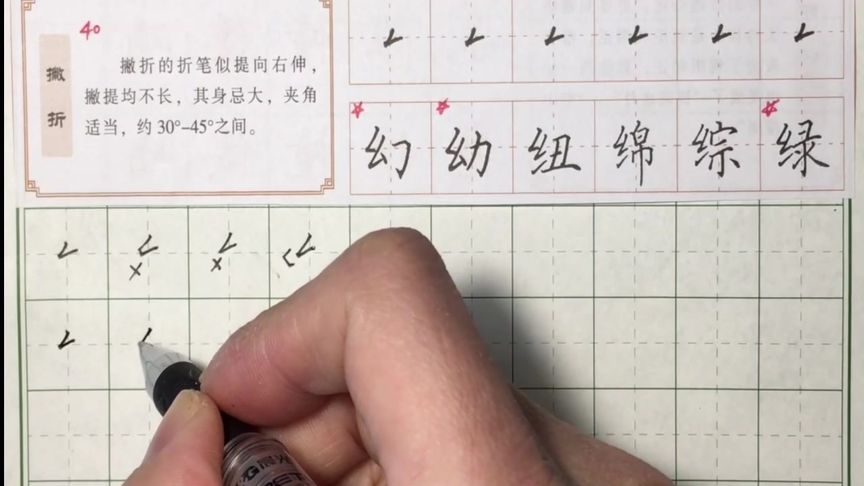 40
撇折
撇折的折笔似提向右伸，
撇提均不长，其身忌大，夹角
适当，约30°-45°之间。
幻幼纽绵综绿
晨光